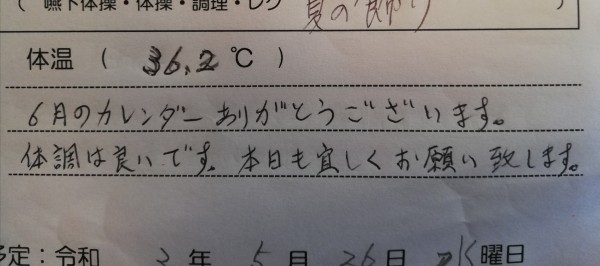 ( 嚥下体操・体操・調理・レク 夏の飾り
体温 ( 36.2 ℃ )
6月のカレンダーありがとうございます。
体調は良いです。本日も宜しくお願い致します。
予定：令和 3 年 5 月 26 日 水 曜日